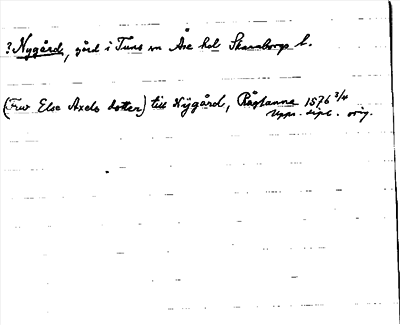 ? Nygård, gård i Tuns sn Åse hd Skaraborgs l.
(Fru Else Axels dotter) till Nÿgård, Rågtanna 1576 3/4
Upps. dipl. orig.